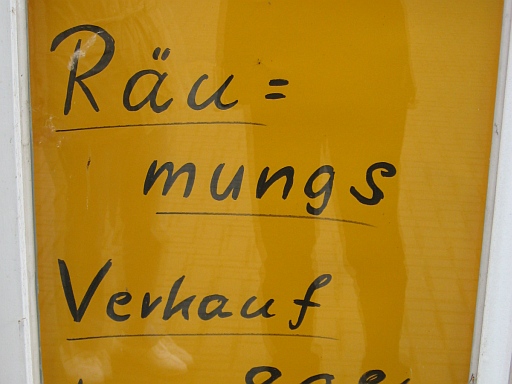 Räu=
mungs
Verkauf